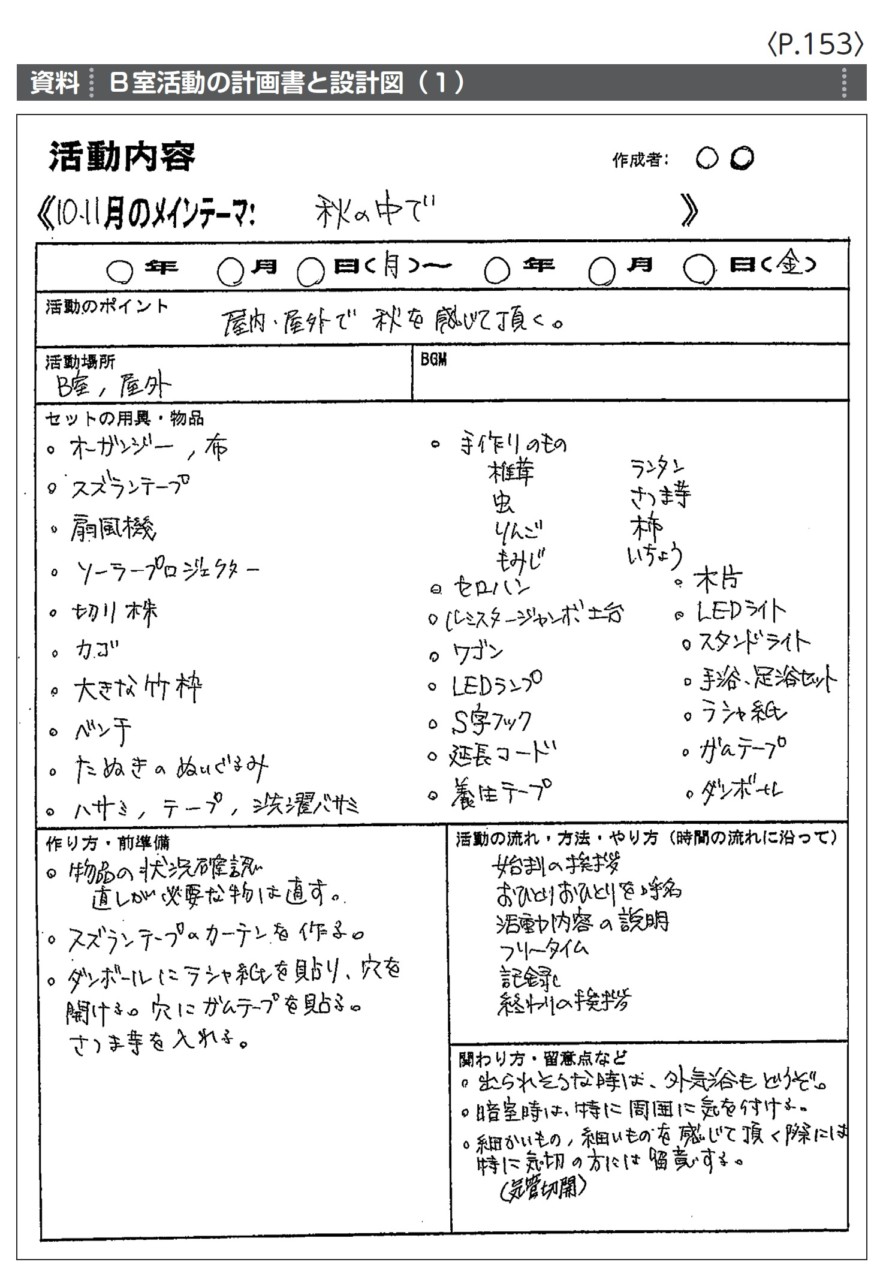 〈P.153〉
資料 B室活動の計画書と設計図（1）
活動内容
作成者: ○ ○
《10.11月のメインテーマ: 秋の中で 》
○年 ○月 ○日(月)～ ○年 ○月 ○日(金)
活動のポイント
屋内・屋外で 秋を感じて頂く。
活動場所
B室, 屋外
BGM
セットの用具・物品
。オーガンジー, 布
。スズランテープ
。扇風機
。ソーラープロジェクター
。切り株
。カゴ
。大きな竹枠
。ベンチ
。たぬきのぬいぐるみ
。ハサミ, テープ, 洗濯バサミ
。手作りのもの
椎茸 ランタン
虫 さつま芋
りんご 柿
もみじ いちょう
。セロハン
。パシスタージャンボ土台
。ワゴン
。LEDランプ
。S字フック
。延長コード
。養生テープ
。木片
。LEDライト
。スタンドライト
。手浴、足浴セット
。ラシャ紙
。ガムテープ
。ダンボール
作り方・前準備
。物品の状況確認
直しが必要な物は直す。
。スズランテープのカーテンを作る。
。ダンボールにラシャ紙を貼り、穴を
開ける。穴にガムテープを貼る。
さつま芋を入れる。
活動の流れ・方法・やり方（時間の流れに沿って）
始まりの挨拶
おひとりおひとりを呼名
活動内容の説明
フリータイム
記録
終わりの挨拶
関わり方・留意点など
。出られそうな時は、外気浴もどうぞ。
。暗室時は、特に周囲に気を付ける。
。細かいもの, 細いものを感じて頂く際には
特に気切の方には留意する。
(気管切開)